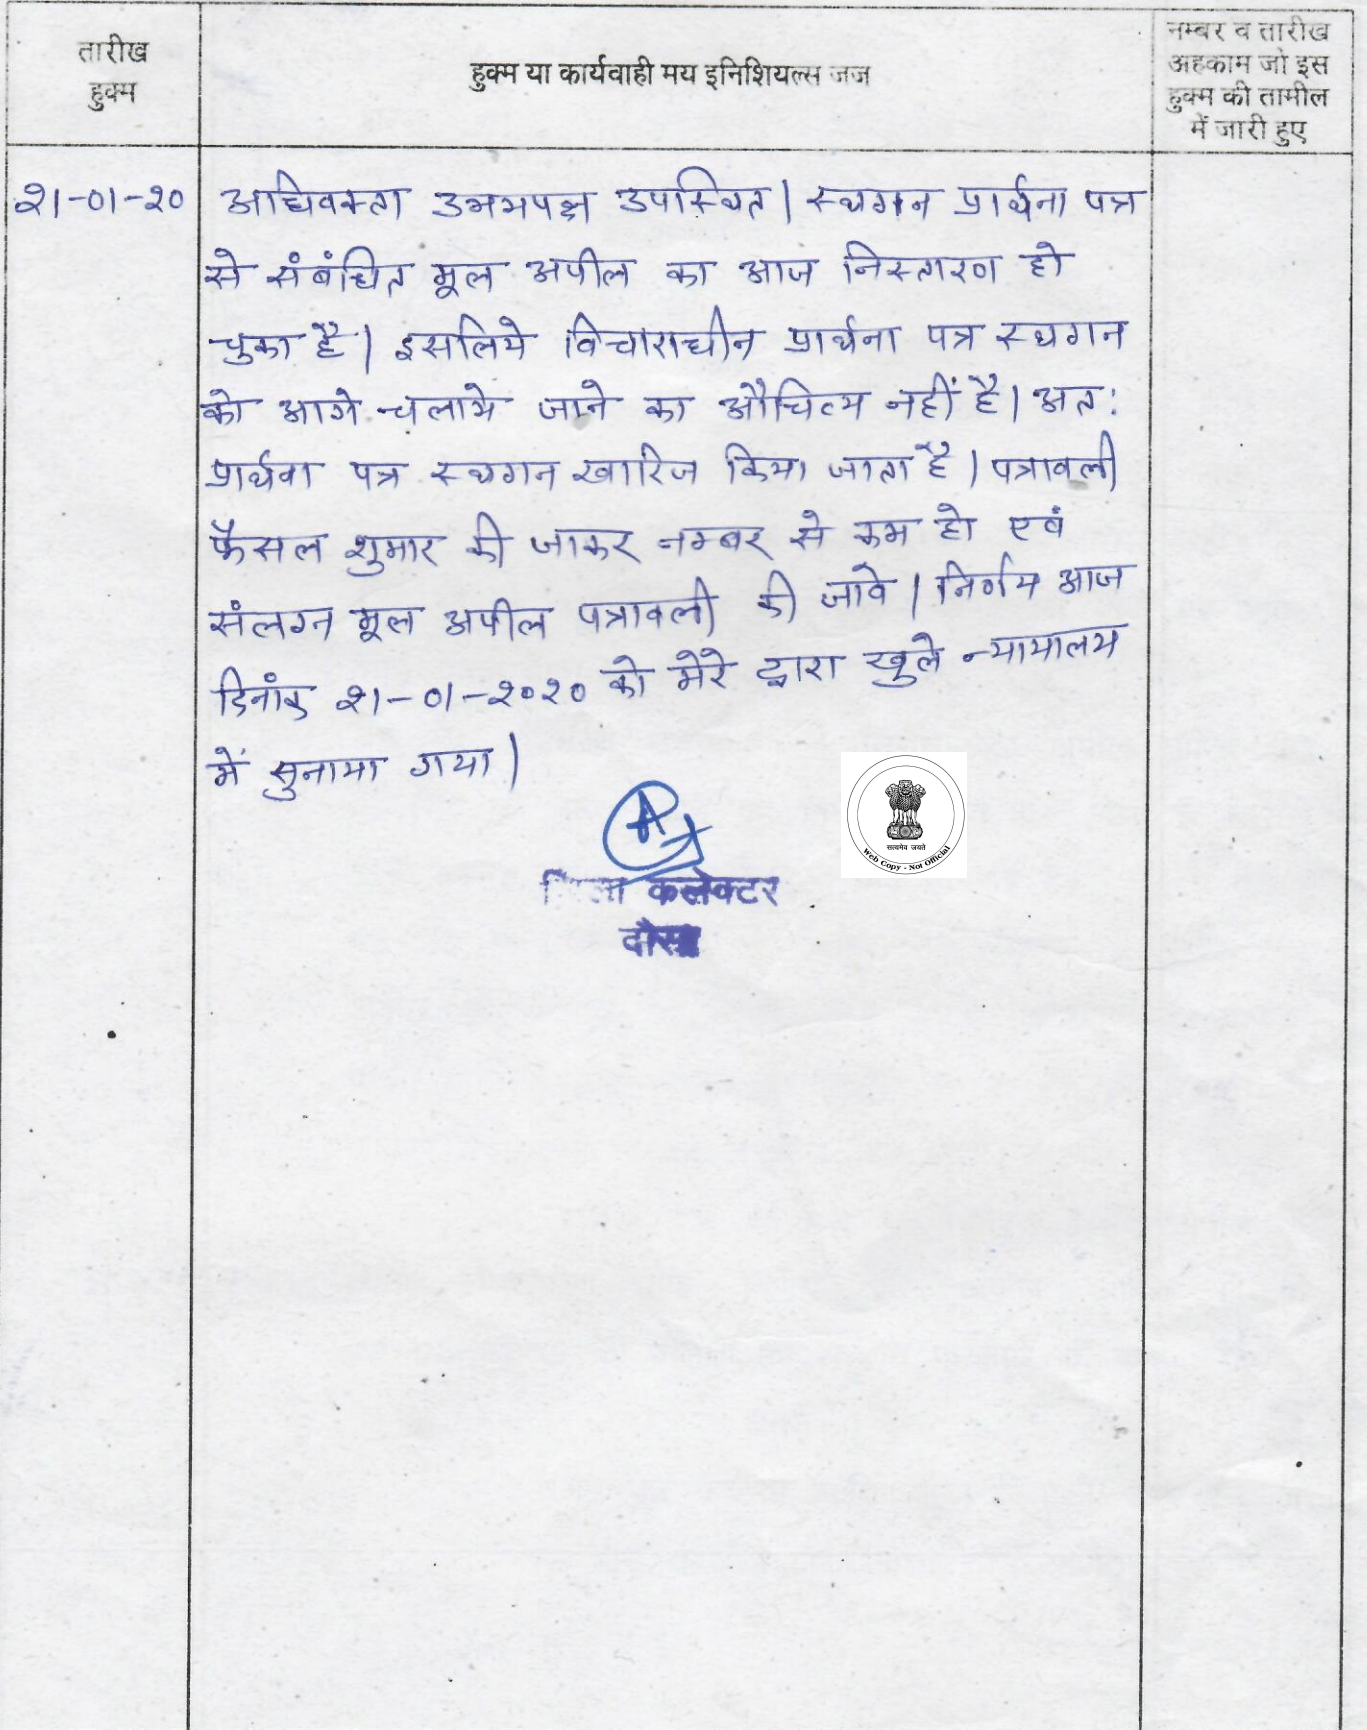 तारीख
हुक्म
हुक्म या कार्यवाही मय इनिशियल्स जज
नम्बर व तारीख
अहकाम जो इस
हुक्म की तामील
में जारी हुए
२१-०१-२०
अधिवक्ता उभयपक्ष उपस्थित। स्थगन प्रार्थना पत्र
से संबंधित मूल अपील का आज निस्तारण हो
चुका है। इसलिये विचाराधीन प्रार्थना पत्र स्थगन
को आगे चलाये जाने का औचित्य नहीं है। अतः
प्रार्थना पत्र स्थगन खारिज किया जाता है। पत्रावली
फैसल शुमार की जाकर नम्बर से कम हो एवं
संलग्न मूल अपील पत्रावली की जावे। निर्णय आज
दिनांक २१-०१-२०२० को मेरे द्वारा खुले न्यायालय
में सुनाया गया।
जिला कलेक्टर
दौसा
सत्यमेव जयते
Web Copy - Not Official